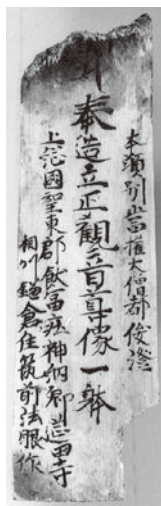 本願別當權大僧都俊澄
奉造立正觀音尊像一躰
上総國望東郡飫富庄神納郷雲寺
相州鎌倉住筑前法眼作